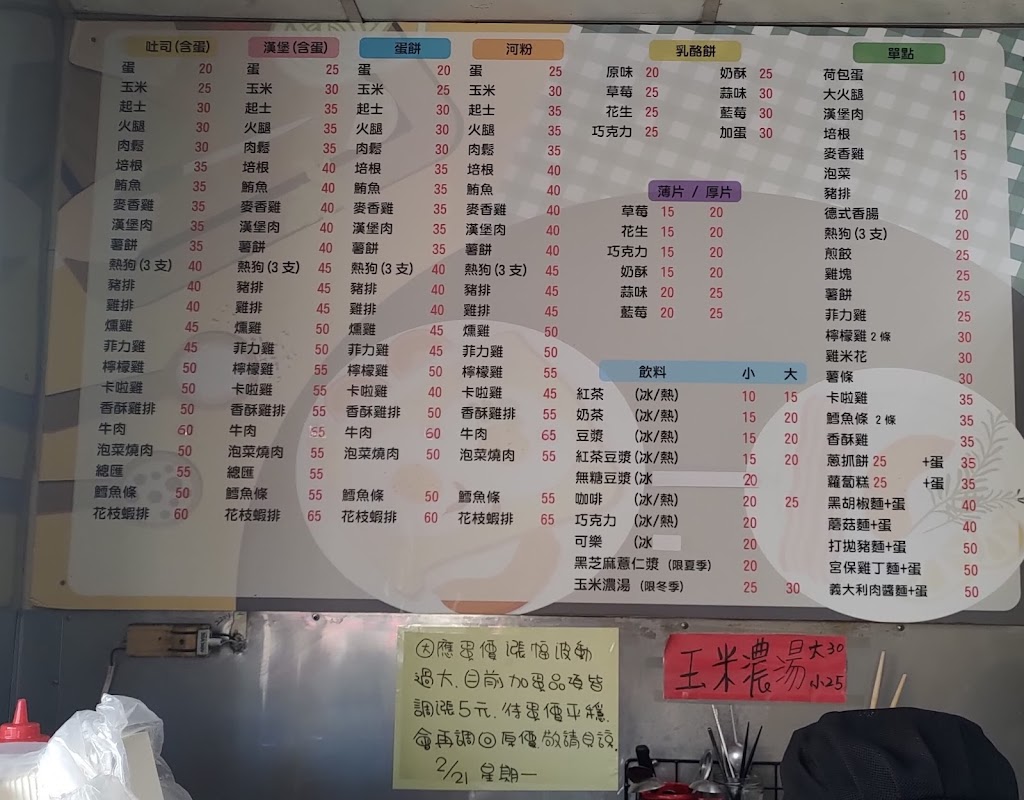 吐司(含蛋)
蛋 20
玉米 25
起士 30
火腿 30
肉鬆 30
培根 35
鮪魚 35
麥香雞 35
漢堡肉 35
薯餅 35
熱狗(3支) 40
豬排 40
雞排 40
燻雞 45
菲力雞 45
檸檬雞 50
卡啦雞 50
香酥雞排 50
牛肉 60
泡菜燒肉 50
總匯 55
鱈魚條 50
花枝蝦排 60
漢堡(含蛋)
蛋 25
玉米 30
起士 35
火腿 35
肉鬆 35
培根 40
鮪魚 40
麥香雞 40
漢堡肉 40
薯餅 40
熱狗(3支) 45
豬排 45
雞排 45
燻雞 50
菲力雞 50
檸檬雞 55
卡啦雞 55
香酥雞排 55
牛肉
泡菜燒肉 55
總匯 55
鱈魚條 55
花枝蝦排 65
蛋餅
蛋 20
玉米 25
起士 30
火腿 30
肉鬆 30
培根 35
鮪魚 35
麥香雞 35
漢堡肉 35
薯餅 35
熱狗(3支) 40
豬排 40
雞排 40
燻雞 45
菲力雞 45
檸檬雞 50
卡啦雞 40
香酥雞排 50
牛肉 60
泡菜燒肉 50
鱈魚條 50
花枝蝦排 60
河粉
蛋 25
玉米 30
起士 35
火腿 35
肉鬆 35
培根 40
鮪魚 40
麥香雞 40
漢堡肉 40
薯餅 40
熱狗(3支) 45
豬排 45
雞排 45
燻雞 50
菲力雞 50
檸檬雞 55
卡啦雞 45
香酥雞排 55
牛肉 65
泡菜燒肉 55
鱈魚條 55
花枝蝦排 65
乳酪餅
原味 20 奶酥 25
草莓 25 蒜味 30
花生 25 藍莓 30
巧克力 25 加蛋 30
薄片 / 厚片
草莓 15 20
花生 15 20
巧克力 15 20
奶酥 15 20
蒜味 20 25
藍莓 20 25
飲料 小 大
紅茶 (冰/熱) 10 15
奶茶 (冰/熱) 15 20
豆漿 (冰/熱) 15 20
紅茶豆漿(冰/熱) 15 20
無糖豆漿(冰 20
咖啡 (冰/熱) 20 25
巧克力 (冰/熱) 20
可樂 (冰 20
黑芝麻薏仁漿 (限夏季) 20
玉米濃湯 (限冬季) 25 30
單點
荷包蛋 10
大火腿 10
漢堡肉 15
培根 15
麥香雞 15
泡菜 15
豬排 20
德式香腸 20
熱狗(3支) 20
煎餃 25
雞塊 25
薯餅 25
菲力雞 25
檸檬雞 2條 30
雞米花 30
薯條 30
卡啦雞 35
鱈魚條 2條 35
香酥雞 35
蔥抓餅 25 +蛋 35
蘿蔔糕 25 +蛋 35
黑胡椒麵+蛋 40
蘑菇麵+蛋 40
打拋豬麵+蛋 50
宮保雞丁麵+蛋 50
義大利肉醬麵+蛋 50
因應蛋價漲幅波動
過大.目前加蛋品項皆
調漲5元.待蛋價平穩.
會再調回原價敬請見諒.
2/21 星期一
玉米濃湯 大30
小25